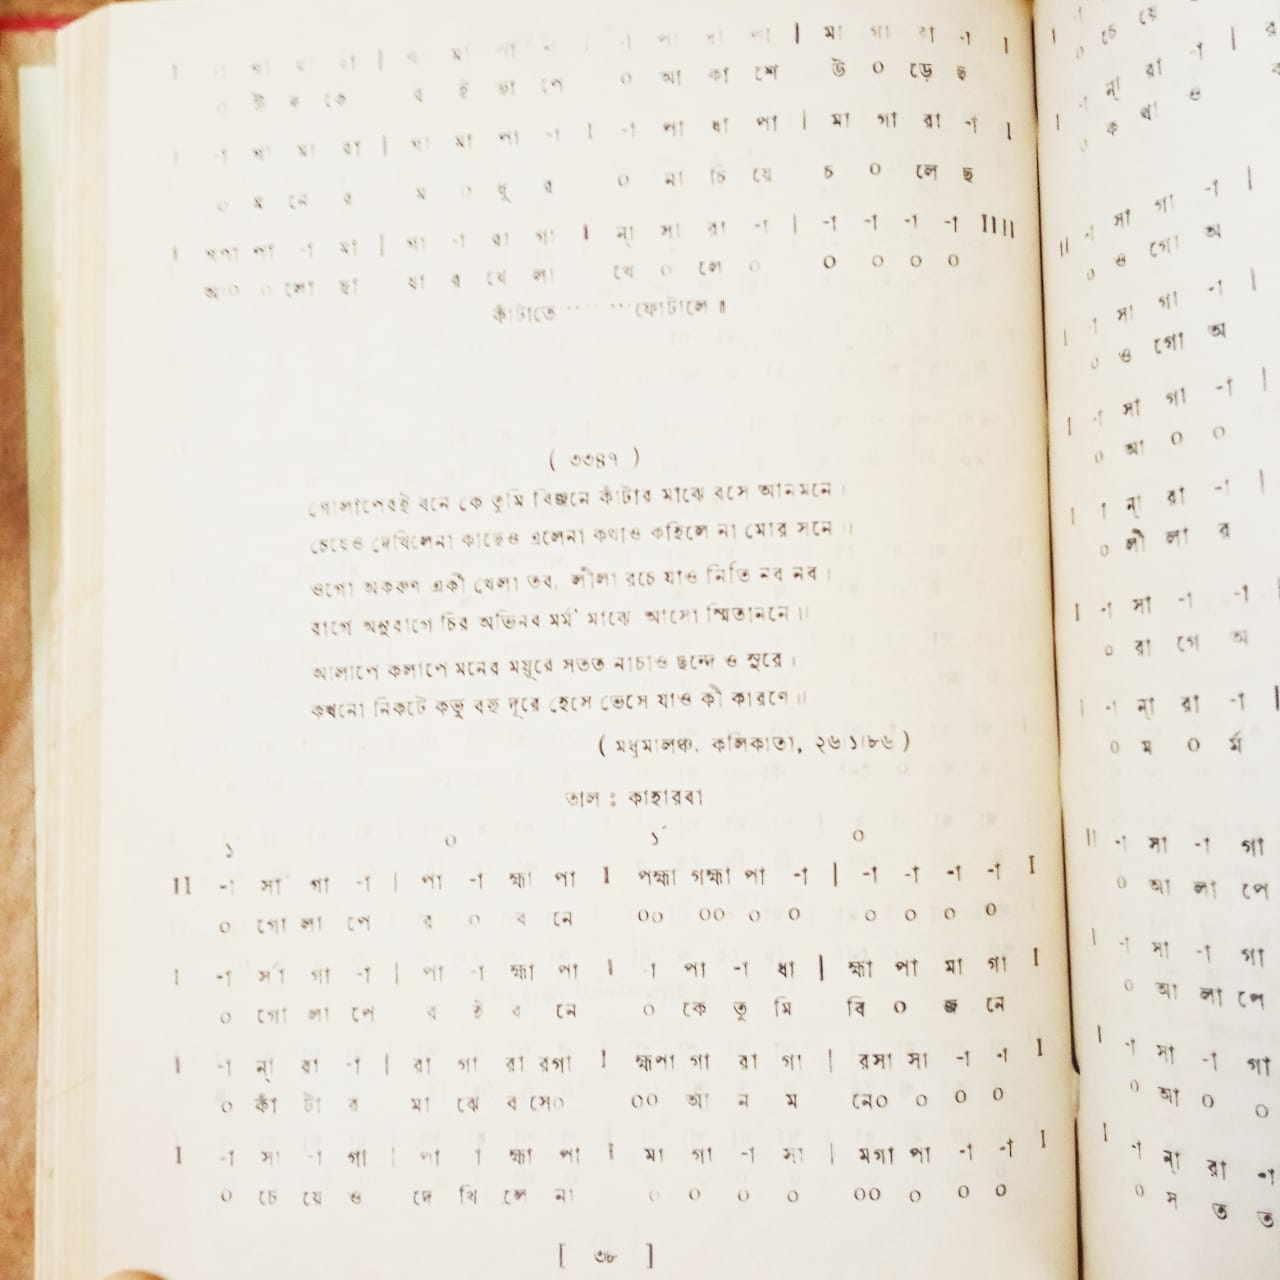 ০ উ ০ ড়ে ছ
০ আ কা শে উ ০ ড়ে ছ
I -া গা মা রা | গা মা পা -া I -া পা ধা পা | মা গা রা -া I
০ ম নে র ম ০ য়ূ র ০ না চি য়ে চ ০ লে ছ
পা -া মা | গা -া রা গা I ন্‌ সা রা -া | -া -া -া -া IIII
আ০ ০ লো ছা য়া র খে লা খে ০ লে ০ ০ ০ ০ ০
কাঁটাতে········ফোটালে॥
( ৩৩৪৭ )
গোলাপেরই বনে কে তুমি বিজনে কাঁটার মাঝে বসে আনমনে।
চেয়েও দেখিলেনা কাছেও এলেনা কথাও কহিলে না মোর সনে॥
ওগো অকরুণ একী খেলা তব, লীলা রচে যাও নিতি নব নব।
রাগে অনুরাগে চির অভিনব মর্ম মাঝে আসো স্মিতাননে॥
আলাপে কলাপে মনের ময়ূরে সতত নাচাও ছন্দে ও সুরে।
কখনো নিকটে কভু বহু দূরে হেসে ভেসে যাও কী কারণে॥
( মধুমালঞ্চ, কলিকাতা, ২৬।১।৮৬ )
তাল : কাহারবা
১ ০ ১´ ০
II -া সা গা -া | পা -া হ্মা পা I পহ্মা গহ্মা পা -া | -া -া -া -া I
০ গো লা পে র ০ ব নে ০০ ০০ ০ ০ ০ ০ ০ ০
I -া সা গা -া | পা -া হ্মা পা I -া পা -া ধা | হ্মা পা মা গা I
০ গো লা পে র ই ব নে ০ কে তু মি বি ০ জ নে
I -া ন্‌া রা -া | রা গা রা রগা I হ্মপা গা রা গা | রসা সা -া -া I
০ কাঁ টা র মা ঝে ব সে০ ০০ আ ন ম নে০ ০ ০ ০
I -া সা -া গা | পা -া হ্মা পা I মা গা -া সা | মগা পা -া -া I
০ চে য়ে ও দে খি লে না ০ ০ ০ ০ ০০ ০ ০ ০
[ ৩৮ ]
০ চে য়ে
-া ন্‌া রা -া |
০ ক থা ও
II -া সা গা -া |
০ ও গো অ
I -া সা গা -া |
০ ও গো অ
I -া সা গা -া |
০ আ ০ ০
I -া ন্‌া রা -া |
০ লী লা র
I -া সা -া -া
০ রা গে অ
I -া ন্‌া রা -া |
০ ম ০ র্ম
II -া সা -া গা
০ আ লা পে
I -া সা -া গা
০ আ লা পে
I -া সা -া গা
০ আ ০ ০
I -া ন্‌া রা -া
০ স ত ত